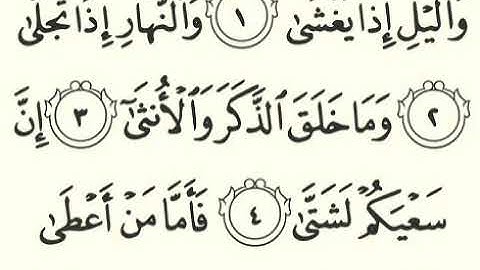 وَاَلَّيْلِ إِذَا يَغْشَىٰ ١ وَالنَّهَارِ إِذَا تَجَلَّىٰ
٢ وَمَا خَلَقَ الذَّكَرَ وَالْأُنثَىٰ ٣ إِنَّ
سَعْيَكُمْ لَشَتَّىٰ ٤ فَأَمَّا مَنْ أَعْطَىٰ